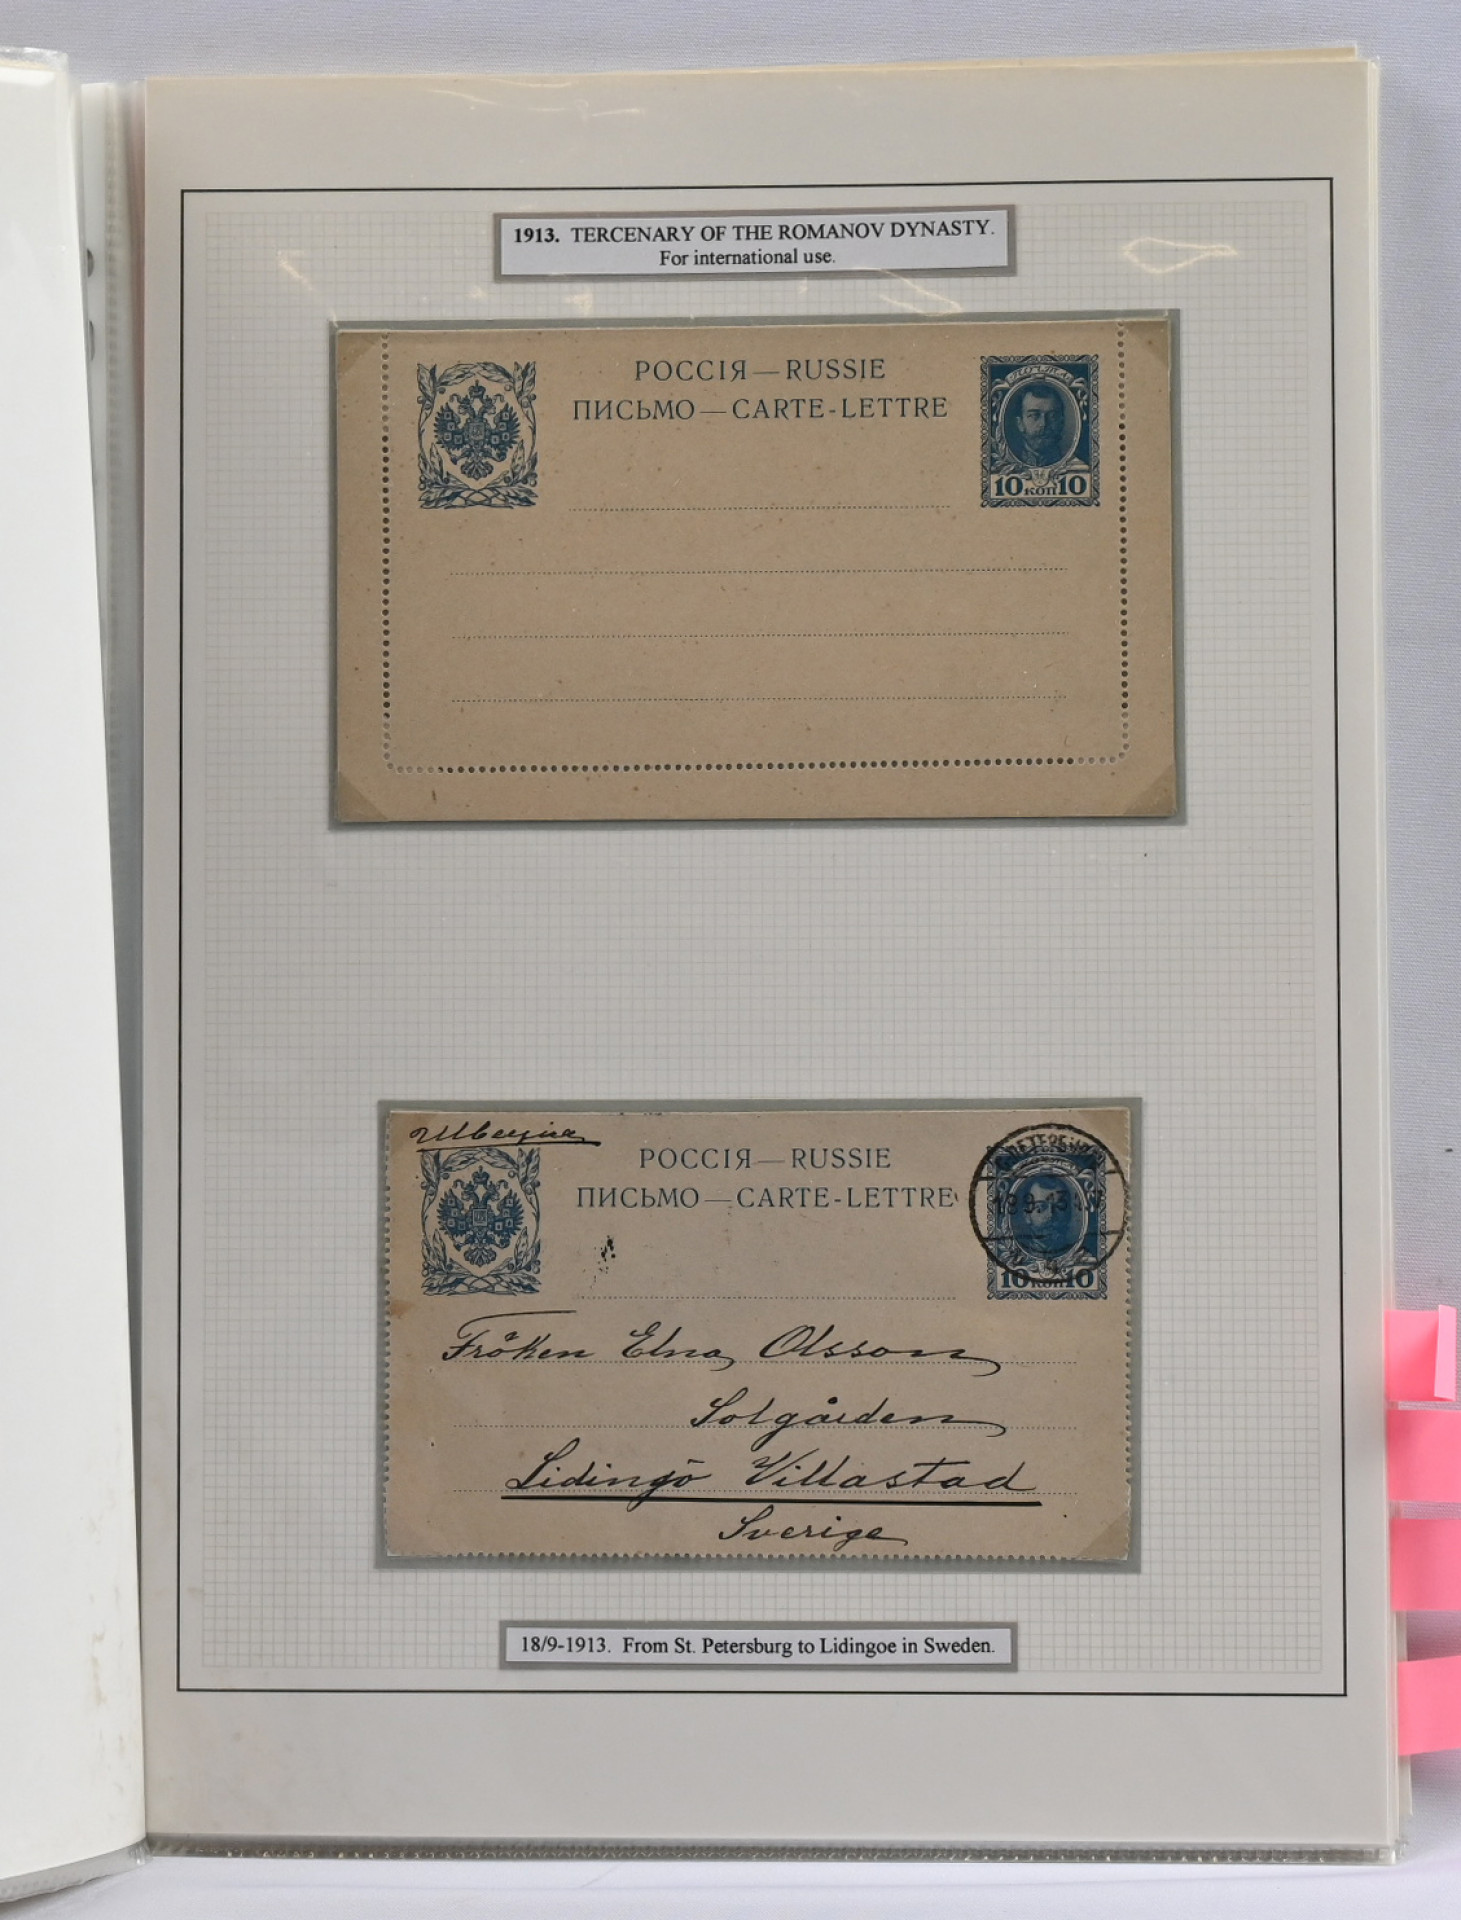 1913. TERCENARY OF THE ROMANOV DYNASTY.
For international use.
РОССІЯ — RUSSIE
ПИСЬМО — CARTE-LETTRE
ПОЧТА
10 КОП 10
Швеція
РОССІЯ — RUSSIE
ПИСЬМО — CARTE-LETTRE
18.9.13
10 КОП 10
Fröken Elna Olsson
Solgården
Lidingö Villastad
Sverige
18/9-1913. From St. Petersburg to Lidingoe in Sweden.